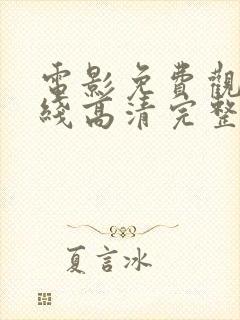 電影免費觀
綫高清完整
夏言冰